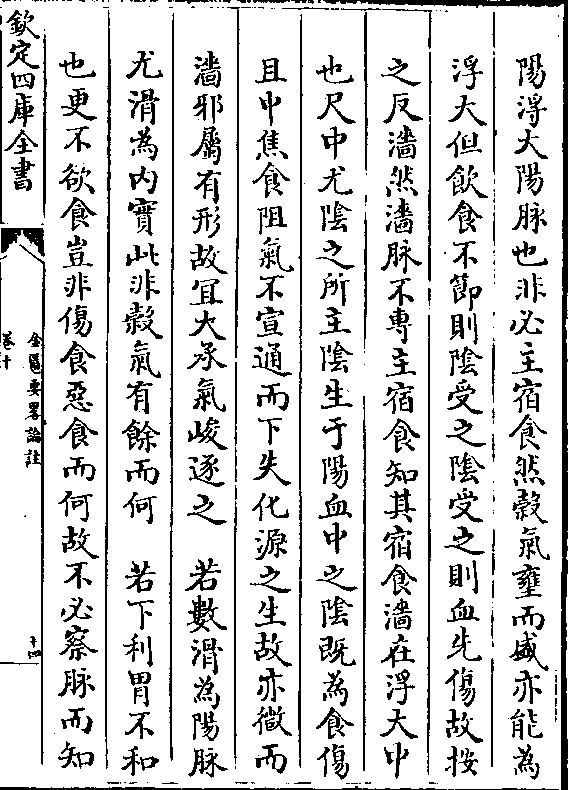 陽浮大陽脉也非必主宿食然穀氣壅而盛亦能為
浮大但飲食不節則陰受之陰受之則血先傷故按
之反濇然濇脉不專主宿食知其宿食濇在浮大中
也尺中尤陰之所主陰生于陽血中之陰既為食傷
且中焦食阻氣不宣通而下失化源之生故亦微而
濇邪屬有形故宜大承氣峻逐之　若數滑為陽脉
尤滑為内實此非穀氣有餘而何　若下利胃不和
也更不欲食豈非傷食惡食而何故不必察脉而知
欽定四庫全書
金匱要畧論註
卷十
十四